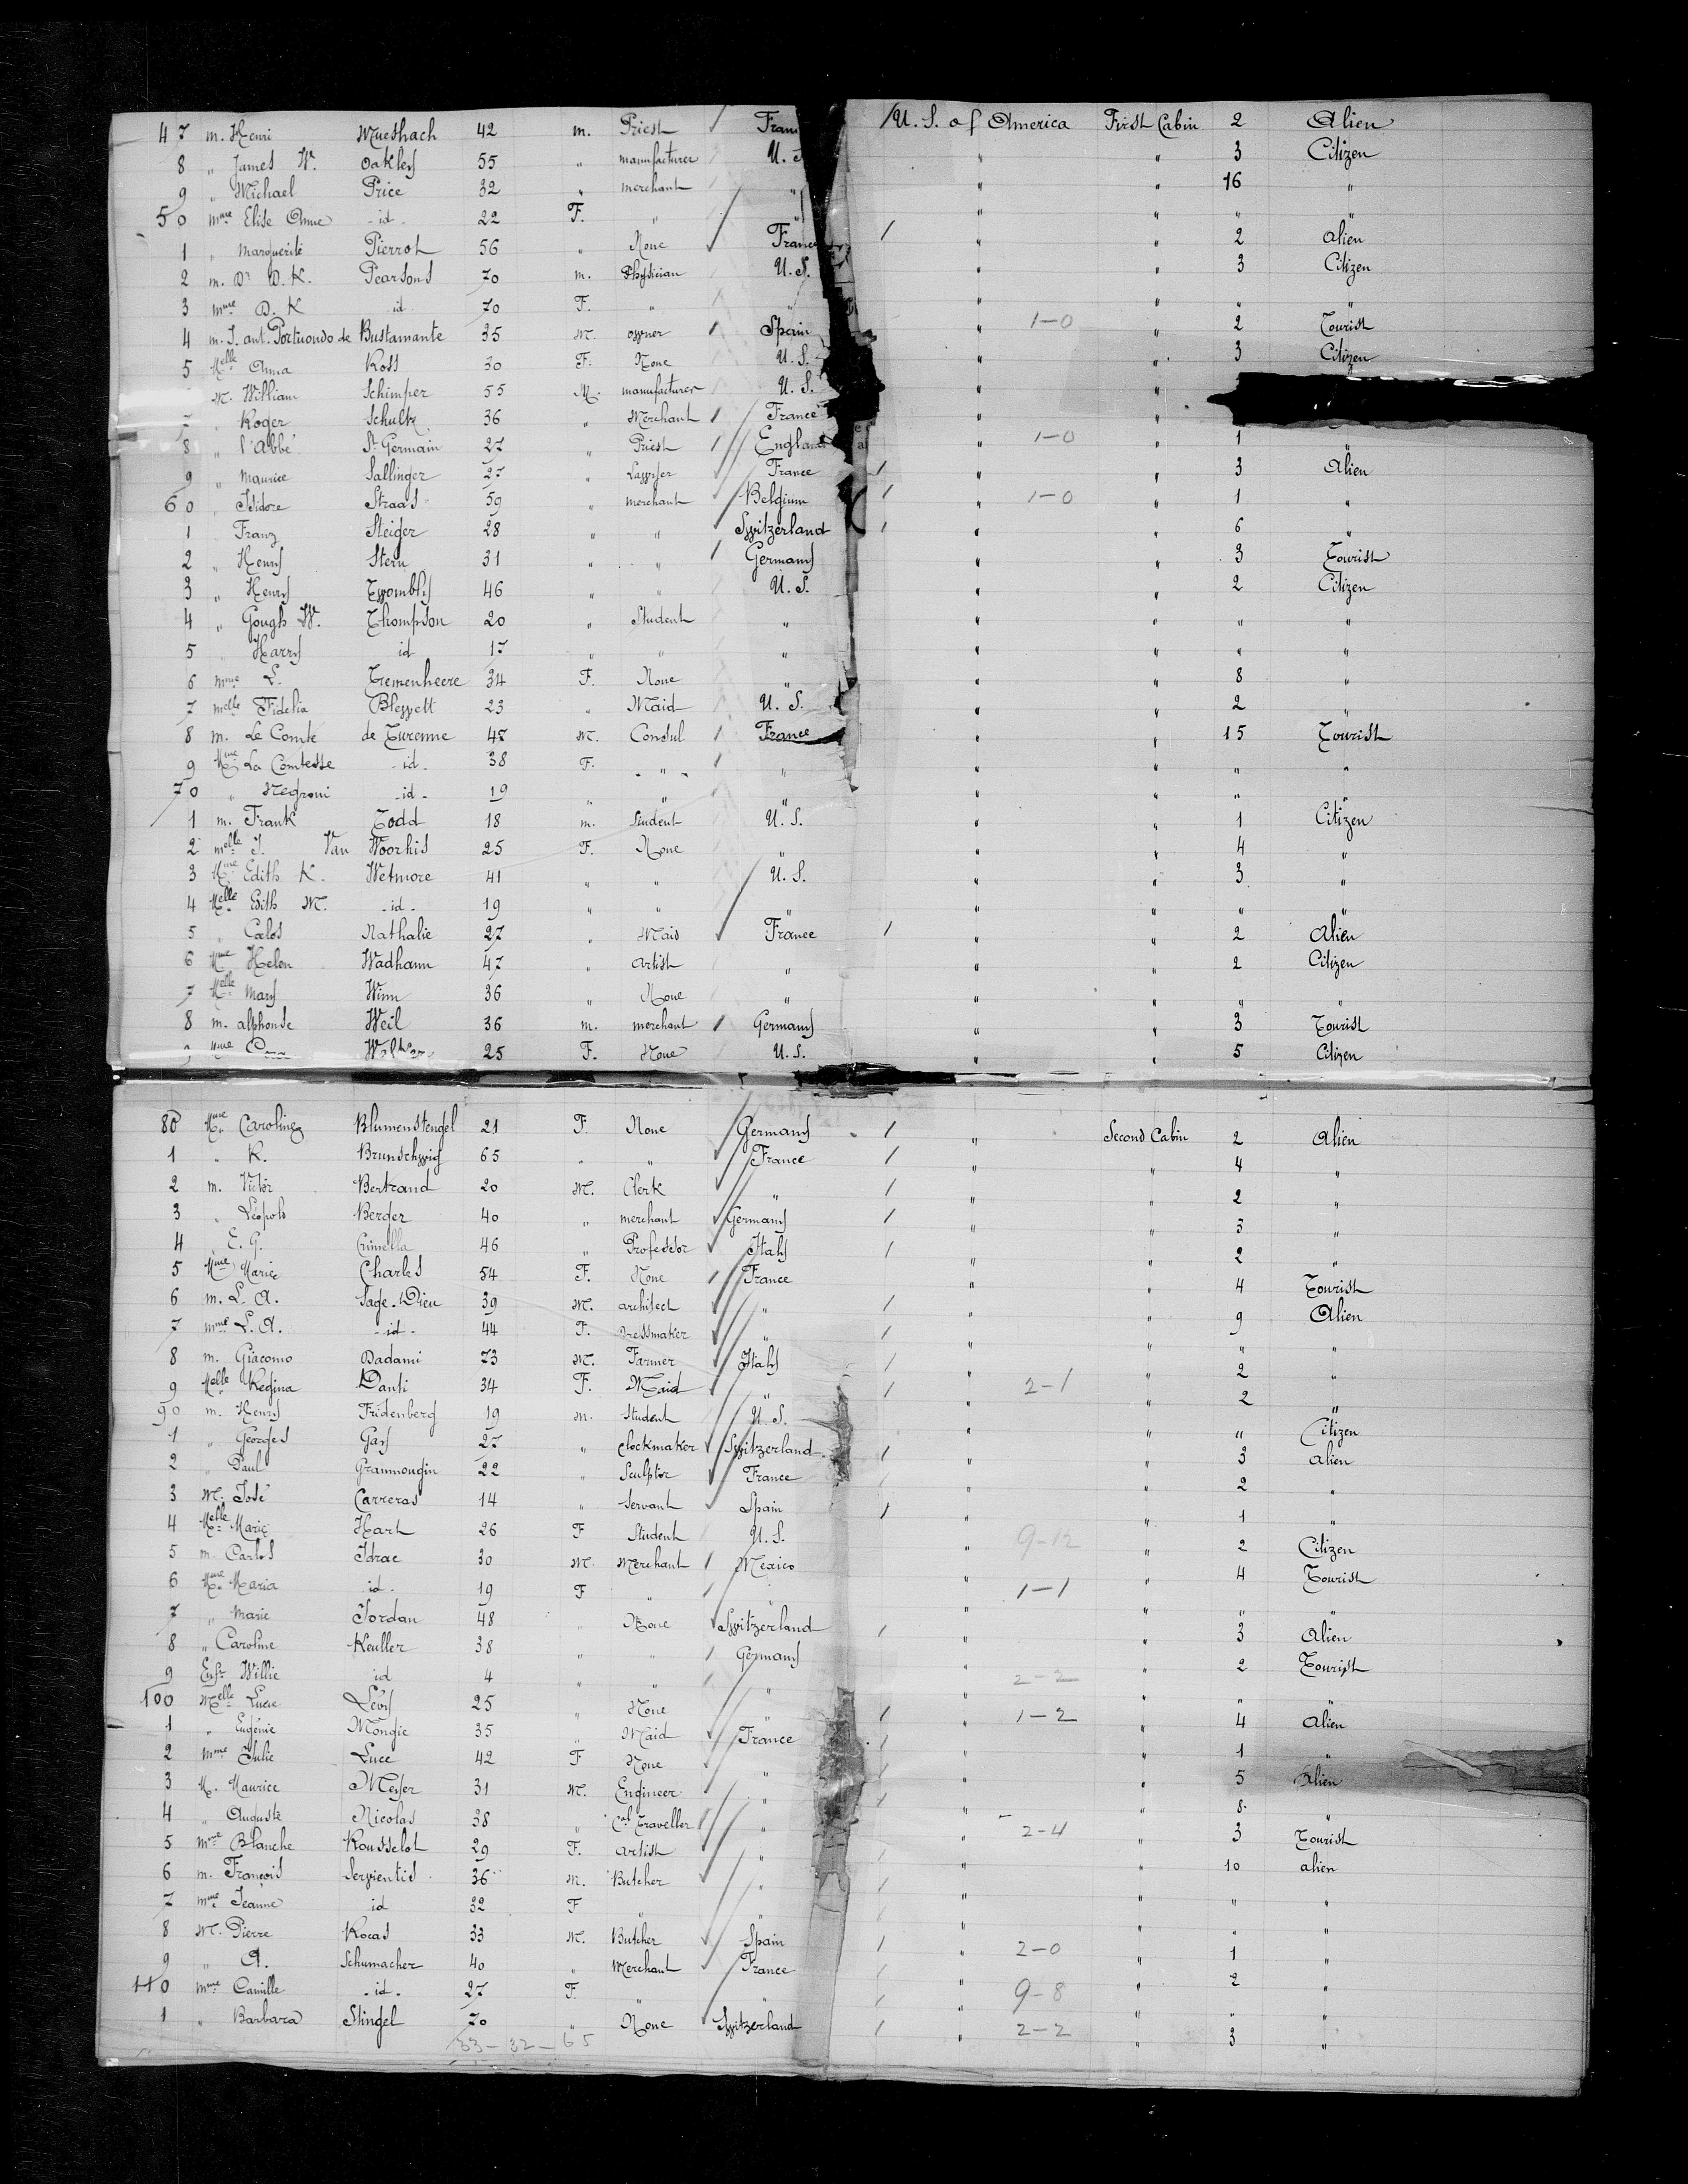 47 m. Henri Mueshach 42 m. Priest Fran / U. S. of America First Cabin 2 Alien
8 " James W. Oakley 55 " manufacturer U. S " " 3 Citizen
9 " Michael Price 32 " merchant " " " 16 "
50 mme Elise Anne - id - 22 F. " " " " " "
1 " Marguerite Pierrot 56 " None France / " " 2 alien
2 m. Dr D. K. Pearsons 70 m. Physician U. S. " " 3 Citizen
3 mme D. K id 70 F. " " " " " "
4 m. J. ant. Portuondo de Bustamante 35 m. owner Spain " 1-0 " 2 Tourist
5 Melle Anna Ross 30 F. None U. S. " " 3 Citizen
M. William Schimper 55 M. manufacturer U. S. " "
7 " Roger Schultz 36 " Merchant France " "
8 " l'Abbé St Germain 27 " Priest England " 1-0 " 1 "
9 " Maurice Sallinger 27 " Lawyer France / " " 3 Alien
60 " Isidore Straas 59 " merchant Belgium / " 1-0 " 1 "
1 Franz Steiger 28 " " Switzerland / " " 6 "
2 " Henry Stern 31 " " Germany " " 3 Tourist
3 " Henry Twombly 46 " " U. S. " " 2 Citizen
4 " Gough W. Thompson 20 " Student " " " " "
5 " Harry id 17 " " " " " " "
6 mme L. Tremenheere 34 F. None " " " 8 "
7 melle Fidelia Blewett 23 " Maid U. S. " " 2 "
8 m. Le Comte de Turenne 45 M. Consul France " " 15 Tourist
9 Mme La Comtesse - id - 38 F. " " " " " "
70 " Negroni - id - 19 " " " " " " "
1 m. Frank Todd 18 m. Student U. S. " " 1 Citizen
2 melle J. Van Woorhis 25 F. None " " " 4 "
3 Mme Edith K. Wetmore 41 " " U. S. " " 3 "
4 Melle Edith M. - id - 19 " " " " " " "
5 " Calos Nathalie 27 " Maid France / " " 2 Alien
6 Mme Helen Wadham 47 " Artist " " " 2 Citizen
7 Melle Mary Winn 36 " None " " " " "
8 m. alphonse Weil 36 m. merchant Germany " " 3 Tourist
Mme 25 F. None U. S. " " 5 Citizen
80 Mme Caroline Blumenstengel 21 F. None Germany / " Second Cabin 2 Alien
1 " K. Brunschwig 65 " " France / " " 4 "
2 m. Victor Bertrand 20 M. Clerk " / " " 2 "
3 " Léopold Berger 40 " merchant Germany / " " 3 "
4 " E. G. Crimella 46 " Professor Italy / " " 2 "
5 Mme Marie Charles 54 F. None France " " 4 Tourist
6 m. L. A. Sage-Dieu 39 M. architect " / " " 9 Alien
7 mme L. A. - id - 44 F. Dressmaker " / " " " "
8 m. Giacomo Dadami 73 M. Farmer Italy / " " 2 "
9 Melle Regina Danti 34 F. Maid " / " 2-1 " 2 "
90 m. Henry Fridenberg 19 m. Student U. S. " " " Citizen
1 " Georges Gay 27 " Clockmaker Switzerland / " " 3 alien
2 " Paul Grammougin 22 " Sculptor France " " 2 "
3 M. José Carreras 14 " Servant Spain / " " 1 "
4 Melle Marie Hart 26 F Student U. S. " 9-12 " 2 Citizen
5 m. Carlos Idrac 30 M. Merchant Mexico " " 4 Tourist
6 Mme Maria id. 19 F " " " 1-1 " " "
7 " Marie Jordan 48 " None Switzerland / " " 3 Alien
8 " Caroline Keuller 38 " " Germany " " 2 Tourist
9 Enft Willie id 4 " " " " 2-2 " " "
100 Melle Lucie Lévy 25 " None " / " 1-2 " 4 Alien
1 " Eugénie Mongie 35 " Maid France / " " 1 "
2 mme Julie Luce 42 F None " / " " 5 Alien
3 M. Maurice Meyer 31 M. Engineer " / " " 8 "
4 " Auguste Nicolas 38 " Cal Traveller " " 2-4 " 3 Tourist
5 mme Blanche Rousselot 29 F. artist " / " " 10 alien
6 m. François Servientis 36 M. Butcher " / " " " "
7 mme Jeanne id 32 F " " / " " " "
8 M. Pierre Rocas 33 M. Butcher Spain / " 2-0 " 1 "
9 " A. Schumacher 40 " Merchant France / " " 2 "
110 mme Camille - id - 27 F. " " / " 9-8 " " "
1 " Barbara Stingel 70 " None Switzerland / " 2-2 " 3 "
33-32-65